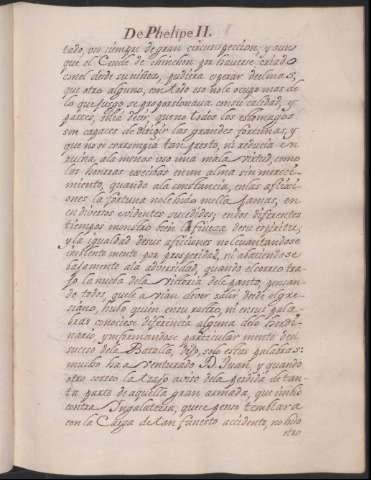 De Phelipe II.
tado, un siempre de gran circunspeccion, y aun
que el Conde de chinchon por hauerse criado
con el desde su niñez, pudiera esperar de el mas,
que otro alguno, con todo eso no le ocupo mas de
lo que juzgo se proporcionaua con su calidad, y
partes, solia decir, que no todos los estomagos
son capaces de digirir las grandes fortunas, y
que no se corrompia tan presto, ni reducia en
ruina, alimento uso una mala virtud, como
las honrras caecibas en un alma sin mereci-
miento, quando a la constancia, en las aflicci-
ones la fortuna no le hido mella jamas, en
en diversos evidentes sucedidos; en dos diferentes
tiempos monstro bien la fineza de su espiritu,
y la igualdad de sus aficiones no leuantandose
insolentemente por prosperidad, ni abatiendose
bajamente a la adversidad, quando el correo tra-
jo la nueba de la vitoria de lepanto, pensan-
do todos, que le avian de ver salir desde el gre-
signo, hubo quien en su rostro, ni en sus pala-
bras conociese diferencia alguna de lo hordi-
nario, y informandose particular mente del
suceso de la Batalla, dijo, solo estas palabras:
mucho ha auenturado D. Juan, y quando
otro correo le trajo aviso de la perdida de tan-
ta parte de aquella gran armada, que imbio
contra Ingalaterra, que el genero temblara
con la Carga de tan funesto accidente, no hido
otro